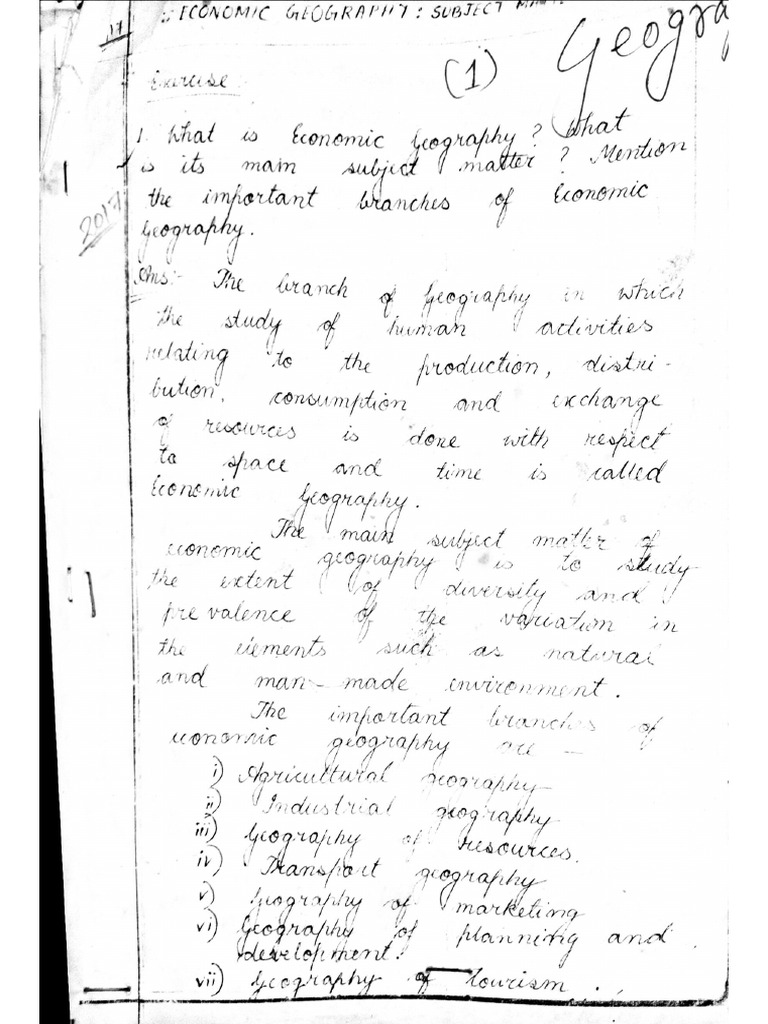 ECONOMIC GEOGRAPHY: SUBJECT
Geogra
(1)
Exercise
1. What is Economic Geography? What
is its main subject matter? Mention
the important branches of Economic
Geography.
2017
Ans:- The branch of Geography in which
the study of human activities
relating to the production, distri-
bution, consumption and exchange
of resources is done with respect
to space and time is called
Economic Geography.
The main subject matter of
economic geography is to study
the extent of diversity and
prevalence of the variation in
the elements such as natural
and man-made environment.
The important branches of
economic geography are -
i) Agricultural geography
ii) Industrial geography
iii) Geography of resources.
iv) Transport geography
v) Geography of marketing
vi) Geography of planning and
development.
vii) Geography of tourism.